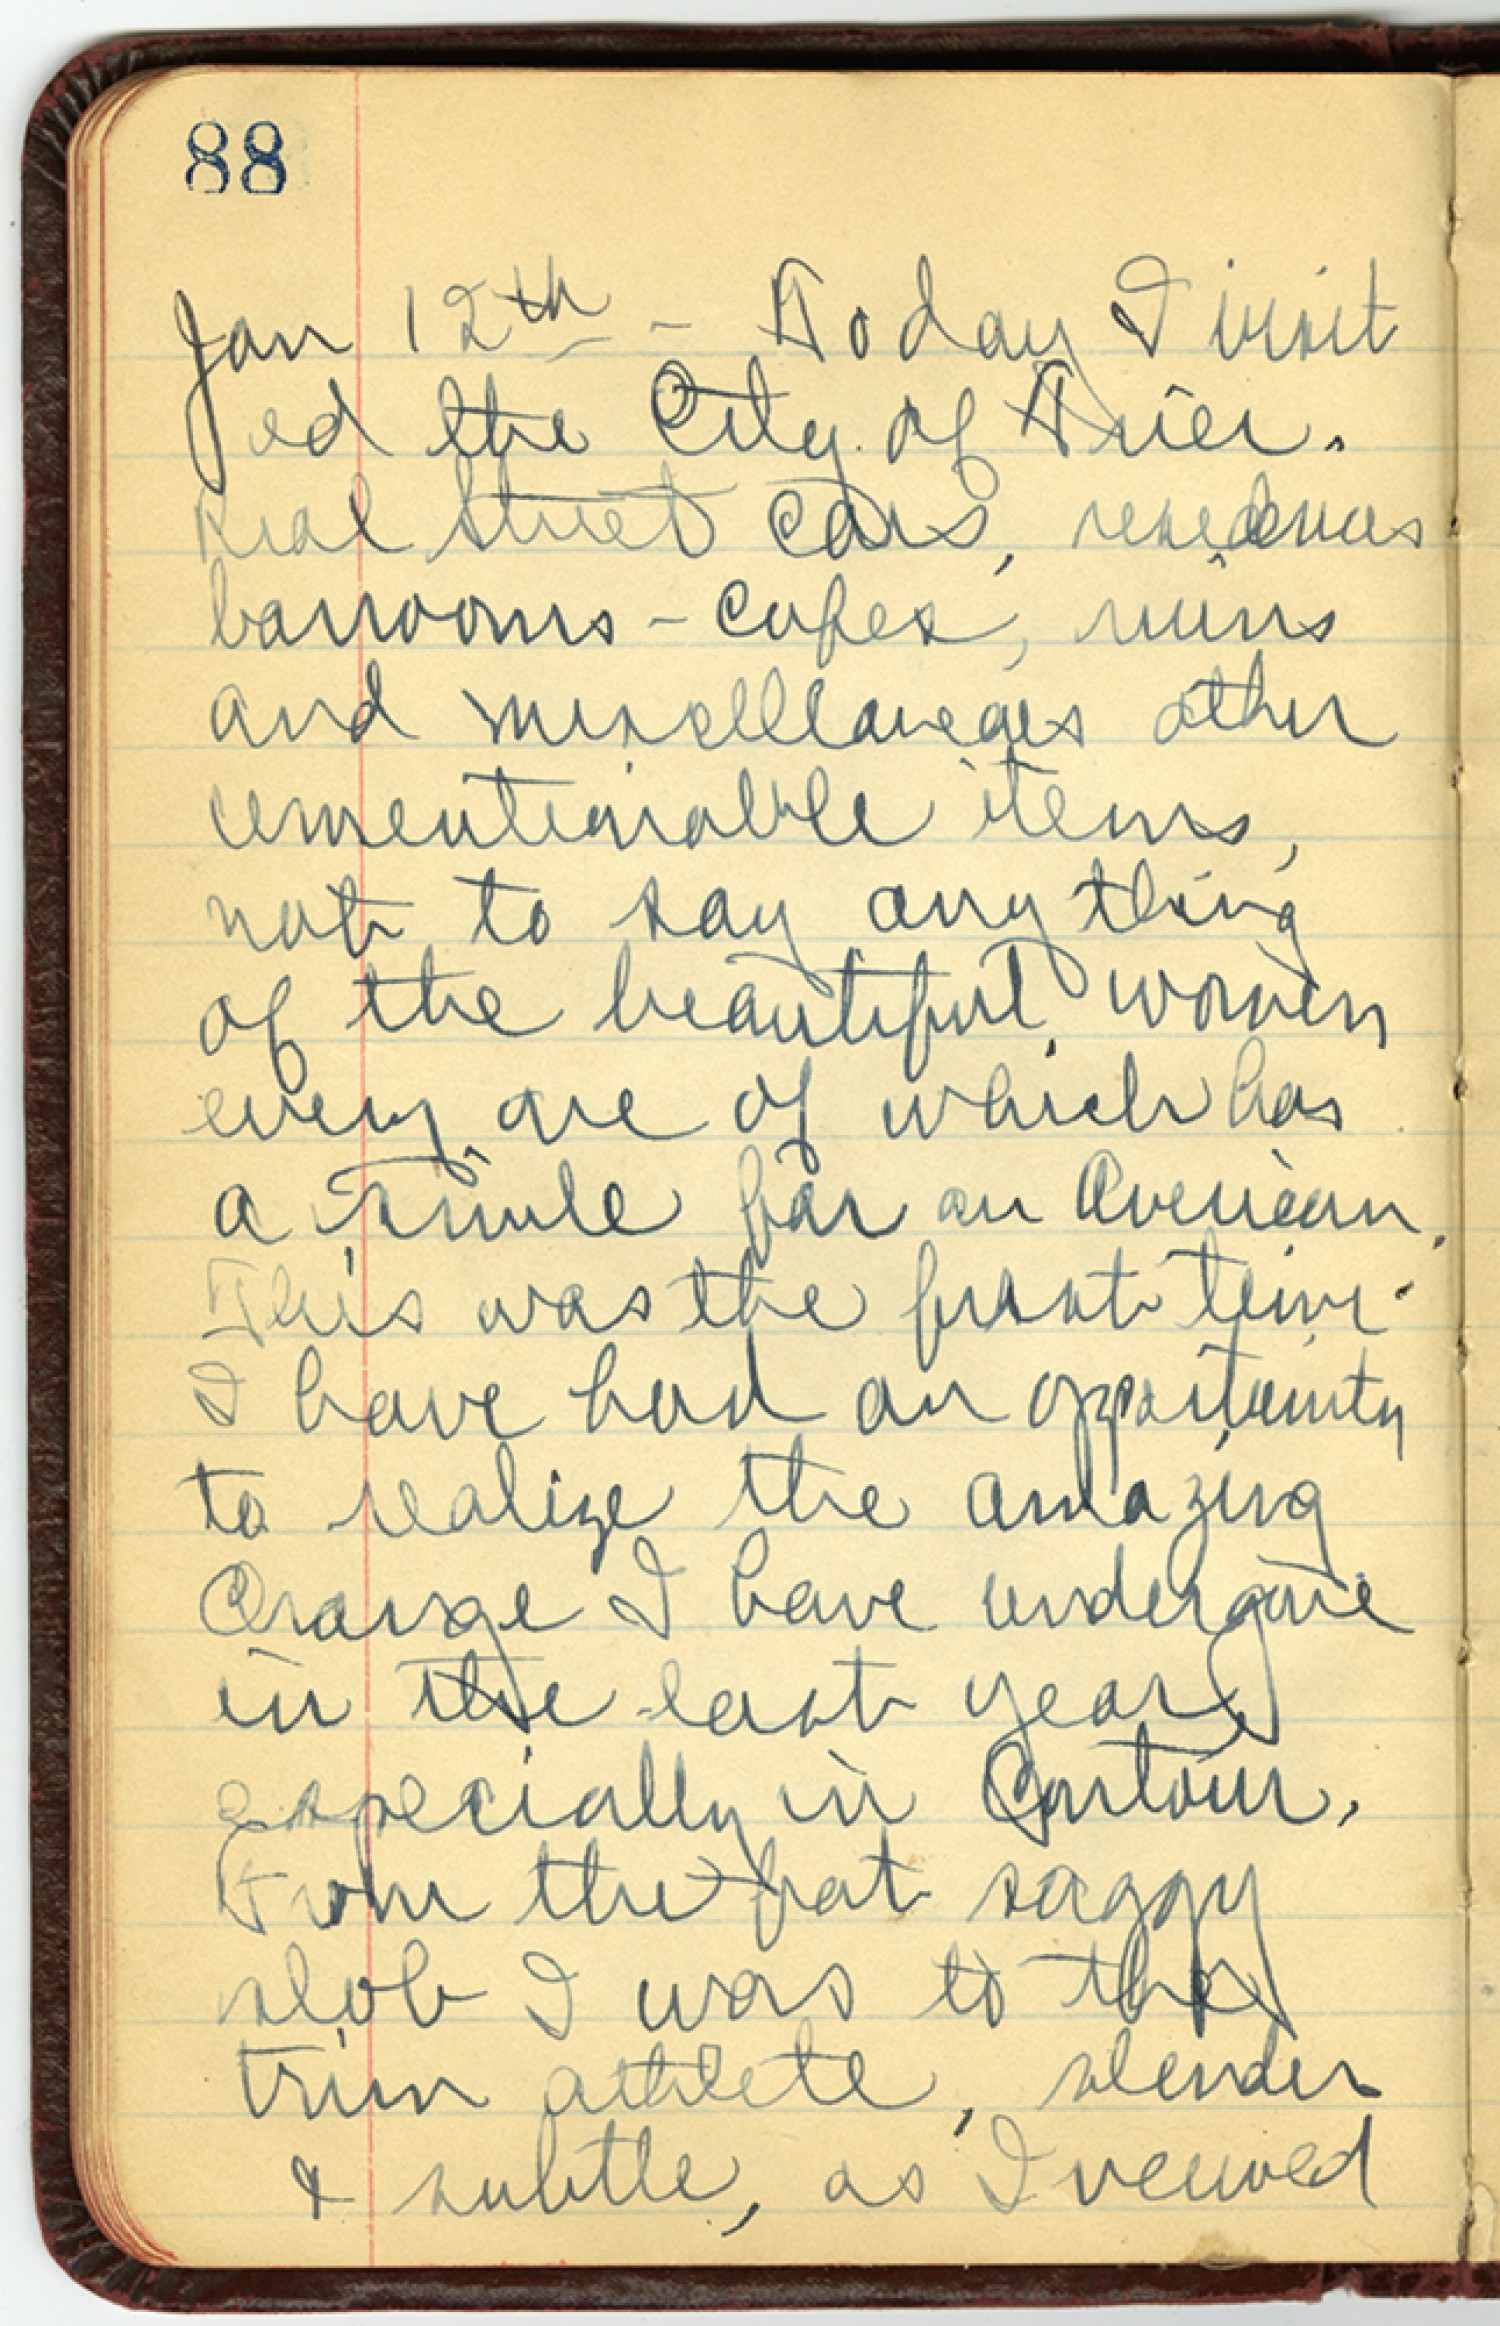 88
Jan 12th - Today I visit
ed the City of Trier.
Real street cars, residences
barrooms - cafes, ruins
and miscellaneous other
unmentionable items,
not to say anything
of the beautiful women
every one of which has
a smile for an American.
This was the first time
I have had an opportunity
to realize the amazing
Change I have undergone
in the last year
especially in Contour.
From the fat saggy
slob I was to the
trim athlete, slender
& subtle, as I viewed